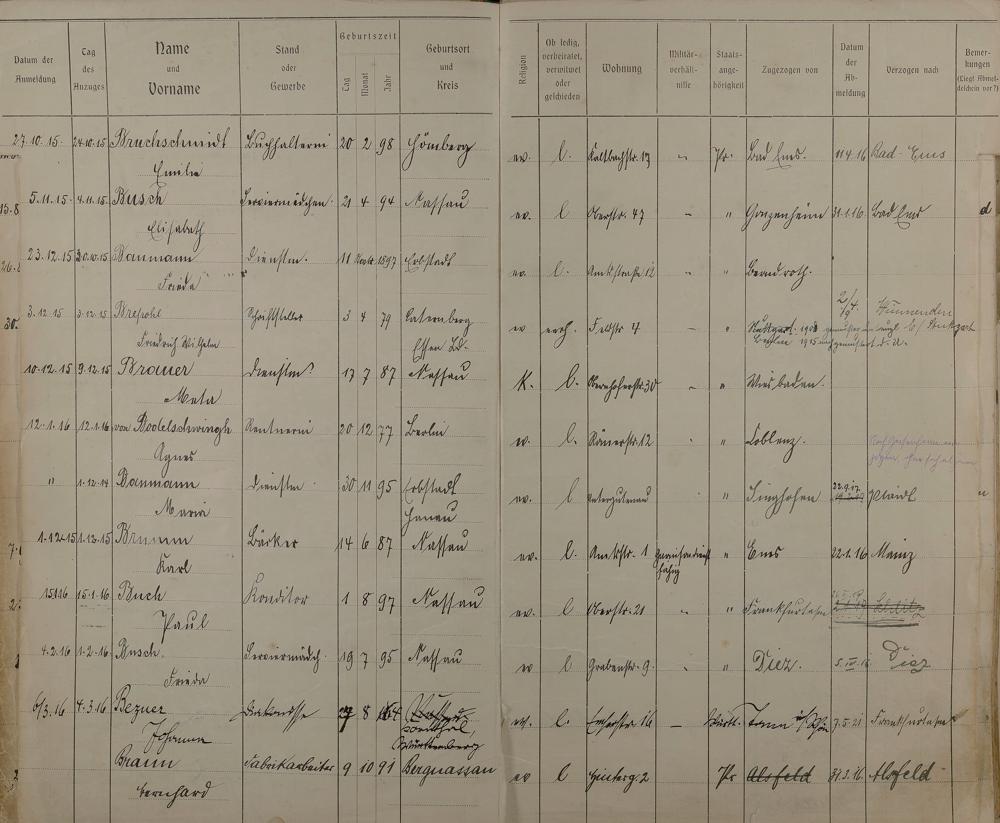 Datum der Anmeldung Tag des Anzuges Name und Vorname Stand oder Gewerbe Geburtszeit Tag Monat Jahr Geburtsort und Kreis Religion Ob ledig, verheiratet, verwitwet oder geschieden Wohnung Militär-verhält-nisse Staats-ange-hörigkeit Zugezogen von Datum der Ab-meldung Verzogen nach Bemer-kungen (Liegt Abmel-deschein vor?)
27.10.15. 24.10.15 Bruchschmidt Buchhalterin 20 2 98 Hömberg ev. l. Kaltbachstr. 17 - Pr. Bad Ems. 11.4.16 Bad-Ems
Emilie
15.8 5.11.15. 4.11.15 Busch Serviermädchen. 21 4 94 Nassau ev. l Oberstr. 47 - " Gonzenheim 31.1.16. Bad Ems d
Elisabeth
23.12.15 30.10.15 Baumann Dienstm. 11 1897 Erbstadt ev. l. Amtsstraße 12 - " Berndroth.
Frieda
30. 3.12.15 3.12.15 Brepohl Schriftsteller 3 4 79 Caternberg ev verh. Feldstr. 4 - " Stuttgart. 1908 Winnenden b/ Stuttgart
Friedrich Wilhelm Essen Berlin 1915
10.12.15 9.12.15 Brauer Dienstm. 17 7 87 Nassau K. l. Obernhoferstr. 30 - " Wiesbaden.
Meta
12.1.16 12.1.16 von Bodelschwingh Rentnerin 20 12 77 Berlin ev. l. Römerstr. 12 " Coblenz.
Agnes
" 1.12.14 Baumann Dienstm. 30 11 95 Erbstadt ev. l " Singhofen 22.9.17 Plaidt "
Maria Hanau
1.12.15 1.12.15 Brumm Bäcker 14 6 87 Nassau ev. l. Amtsstr. 1 garnisondienst fähig " Ems 22.1.16 Mainz
Karl
15.1.16 15.1.16 Buch Konditor 1 8 97 Nassau ev. l Oberstr. 21 - " Frankfurt a/m
Paul
4.2.16 1.2.16 Busch. Serviermädch. 19 7 95 Nassau ev l Grabenstr. 9. - " Diez. 5.III.16 Diez
Frieda
6/3.16 4.3.16 Bezner Diakonisse 27 8 64 ev. l. Emserstr. 16 - Württ. 7.5.21 Frankfurt a/m
Johanna Württemberg
Braun Fabrikarbeiter 9 10 91 Bergnassau ev l Hinterg. 2 Pr Alsfeld 31.3.16 Alsfeld
Bernhard